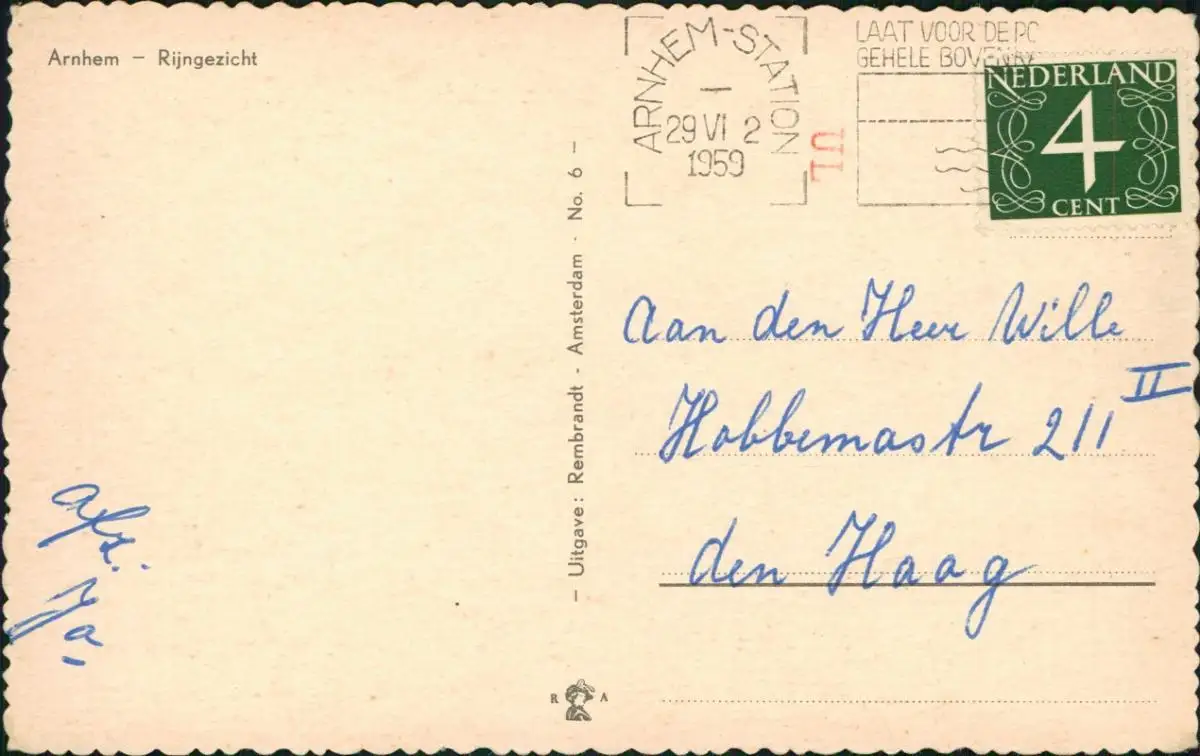 Arnhem – Rijngezicht
ARNHEM-STATION
29 VI 2
1959
LAAT VOOR DE PO
GEHELE BOVENKA
NEDERLAND
4
CENT
– Uitgave: Rembrandt - Amsterdam - No. 6 –
Aan den Heer Wille
Hobbemastr 211 II
den Haag
afz.:
R A